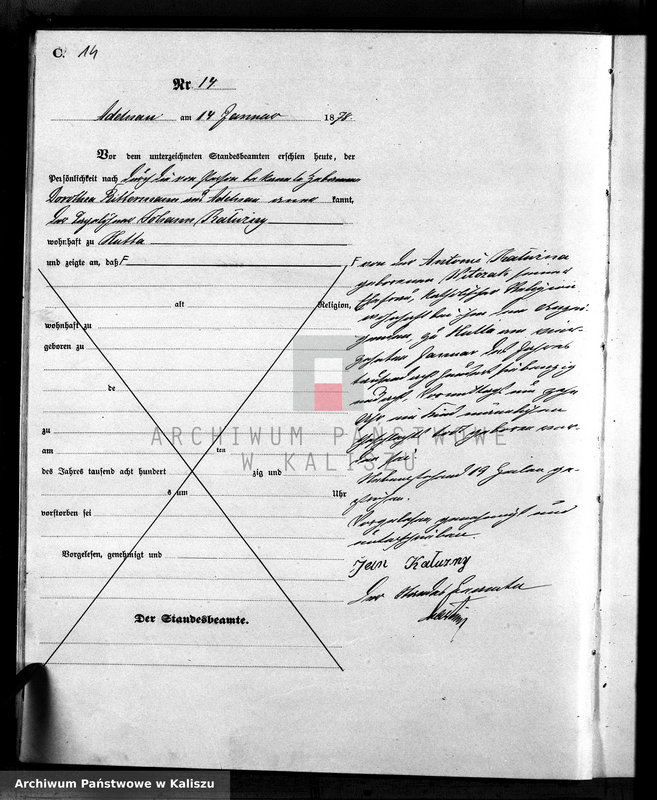 C. 14
Nr 14
Adelnau am 14 Januar 1878
Vor dem unterzeichneten Standesbeamten erschien heute, der
Persönlichkeit nach durch die von Person bekannte Hebamme
Dorothea Rittermann aus Adelnau kannt,
der Johann Kałużny
wohnhaft zu Hutta
und zeigte an, daß F
alt Religion,
wohnhaft zu
geboren zu
de
zu
am ten
des Jahres tausend acht hundert zig und
s um Uhr
verstorben sei
Vorgelesen, genehmigt und
Der Standesbeamte.
F von der Antonie Kałużna
geborenen seiner
Ehefrau, katholischer Religion
wohnhaft bei ihm dem Anzei
genden, zu Hutta am vier
zehnten Januar des Jahres
tausend acht hundert siebenzig
und acht Vormittags um zehn
Uhr ein Kind männlichen
Geschlechts todt geboren wor
den sei.
Nebenstehend 19 Zeilen ge-
strichen.
Vorgelesen, genehmigt und
unterschrieben
Jan Kałuzny
Der Standesbeamte
ARCHIWUM PAŃSTWOWE
W KALISZU
Archiwum Państwowe w Kaliszu